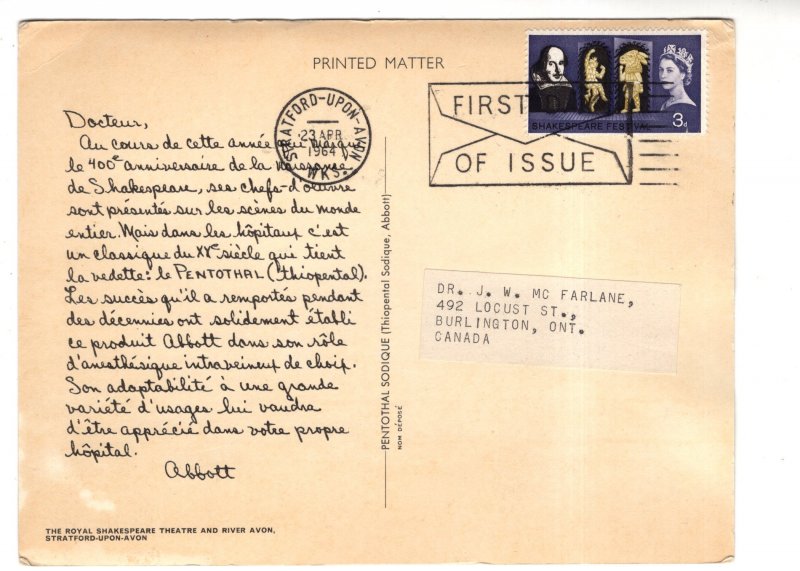 PRINTED MATTER
STRATFORD-UPON-AVON
23 APR
1964
WKS.
FIRST
OF ISSUE
SHAKESPEARE FESTIVAL
3d
Docteur,
Au cours de cette année qui marque
le 400e anniversaire de la naissance
de Shakespeare, ses chefs-d'œuvre
sont présentés sur les scènes du monde
entier. Mais dans les hôpitaux c'est
un classique du XXe siècle qui tient
la vedette: le PENTOTHAL (thiopental).
Les succès qu'il a remportés pendant
des décennies ont solidement établi
ce produit Abbott dans son rôle
d'anesthésique intraveineux de choix.
Son adaptabilité à une grande
variété d'usages lui vaudra
d'être apprécié dans votre propre
hôpital.
Abbott
PENTOTHAL SODIQUE (Thiopental Sodique, Abbott)
NOM DÉPOSÉ
DR. J. W. MC FARLANE,
492 LOCUST ST.,
BURLINGTON, ONT.
CANADA
THE ROYAL SHAKESPEARE THEATRE AND RIVER AVON,
STRATFORD-UPON-AVON